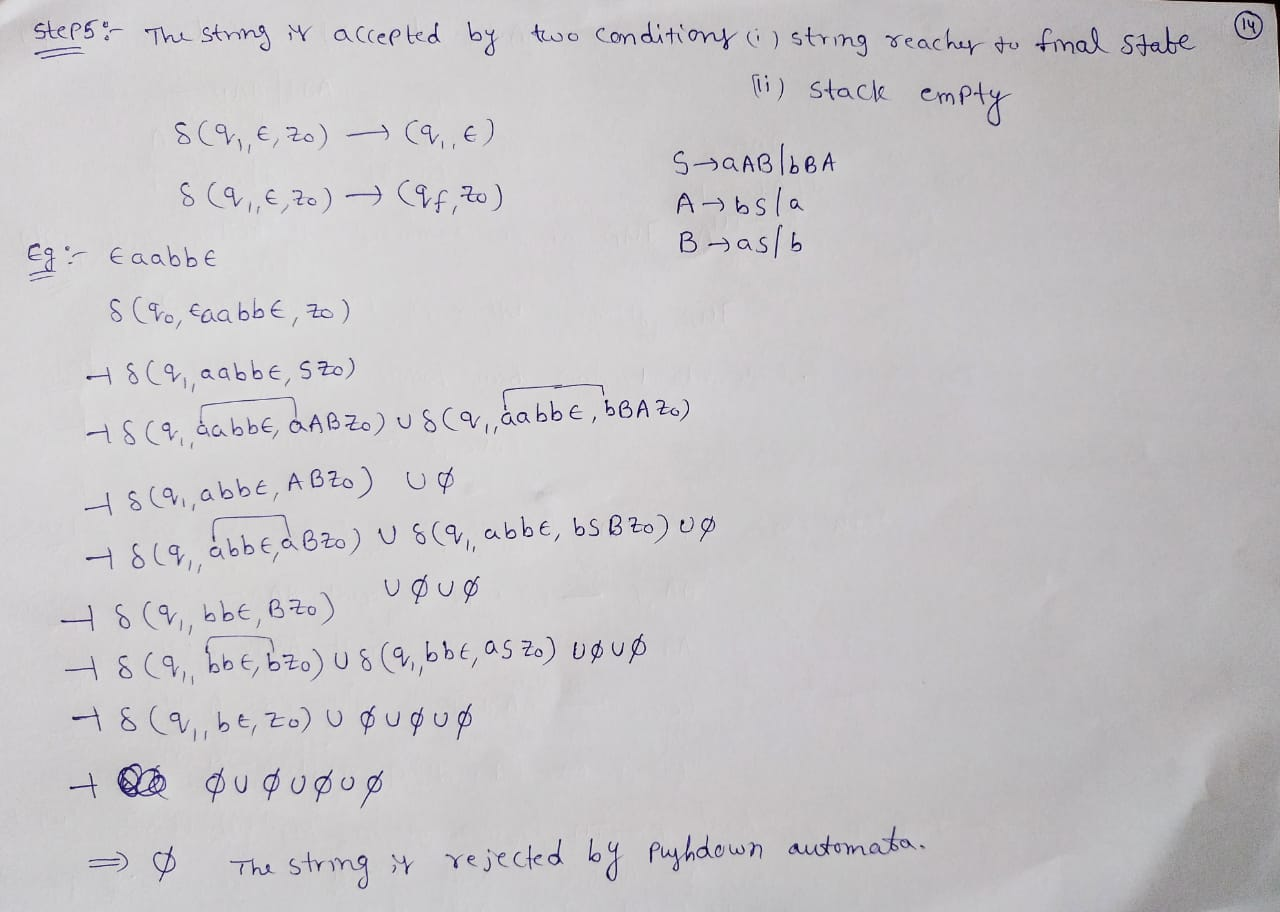 14
Step5:- The string is accepted by two conditions (i) string reaches to final state
(ii) stack empty
δ(q₁, ε, z₀) → (q₁, ε)
δ(q₁, ε, z₀) → (qf, z₀)
S → aAB | bBA
A → bS / a
B → aS / b
Eg:- εaabbε
δ(q₀, εaabbε, z₀)
⊣ δ(q₁, aabbε, Sz₀)
⊣ δ(q₁, aabbε, aABz₀) ∪ δ(q₁, aabbε, bBAz₀)
⊣ δ(q₁, abbε, ABz₀) ∪ ∅
⊣ δ(q₁, abbε, aBz₀) ∪ δ(q₁, abbε, bSBz₀) ∪ ∅
⊣ δ(q₁, bbε, Bz₀) ∪ ∅ ∪ ∅
⊣ δ(q₁, bbε, bz₀) ∪ δ(q₁, bbε, aSz₀) ∪ ∅ ∪ ∅
⊣ δ(q₁, bε, z₀) ∪ ∅ ∪ ∅ ∪ ∅
⊣ ∅ ∪ ∅ ∪ ∅ ∪ ∅
⇒ ∅ The string is rejected by pushdown automata.